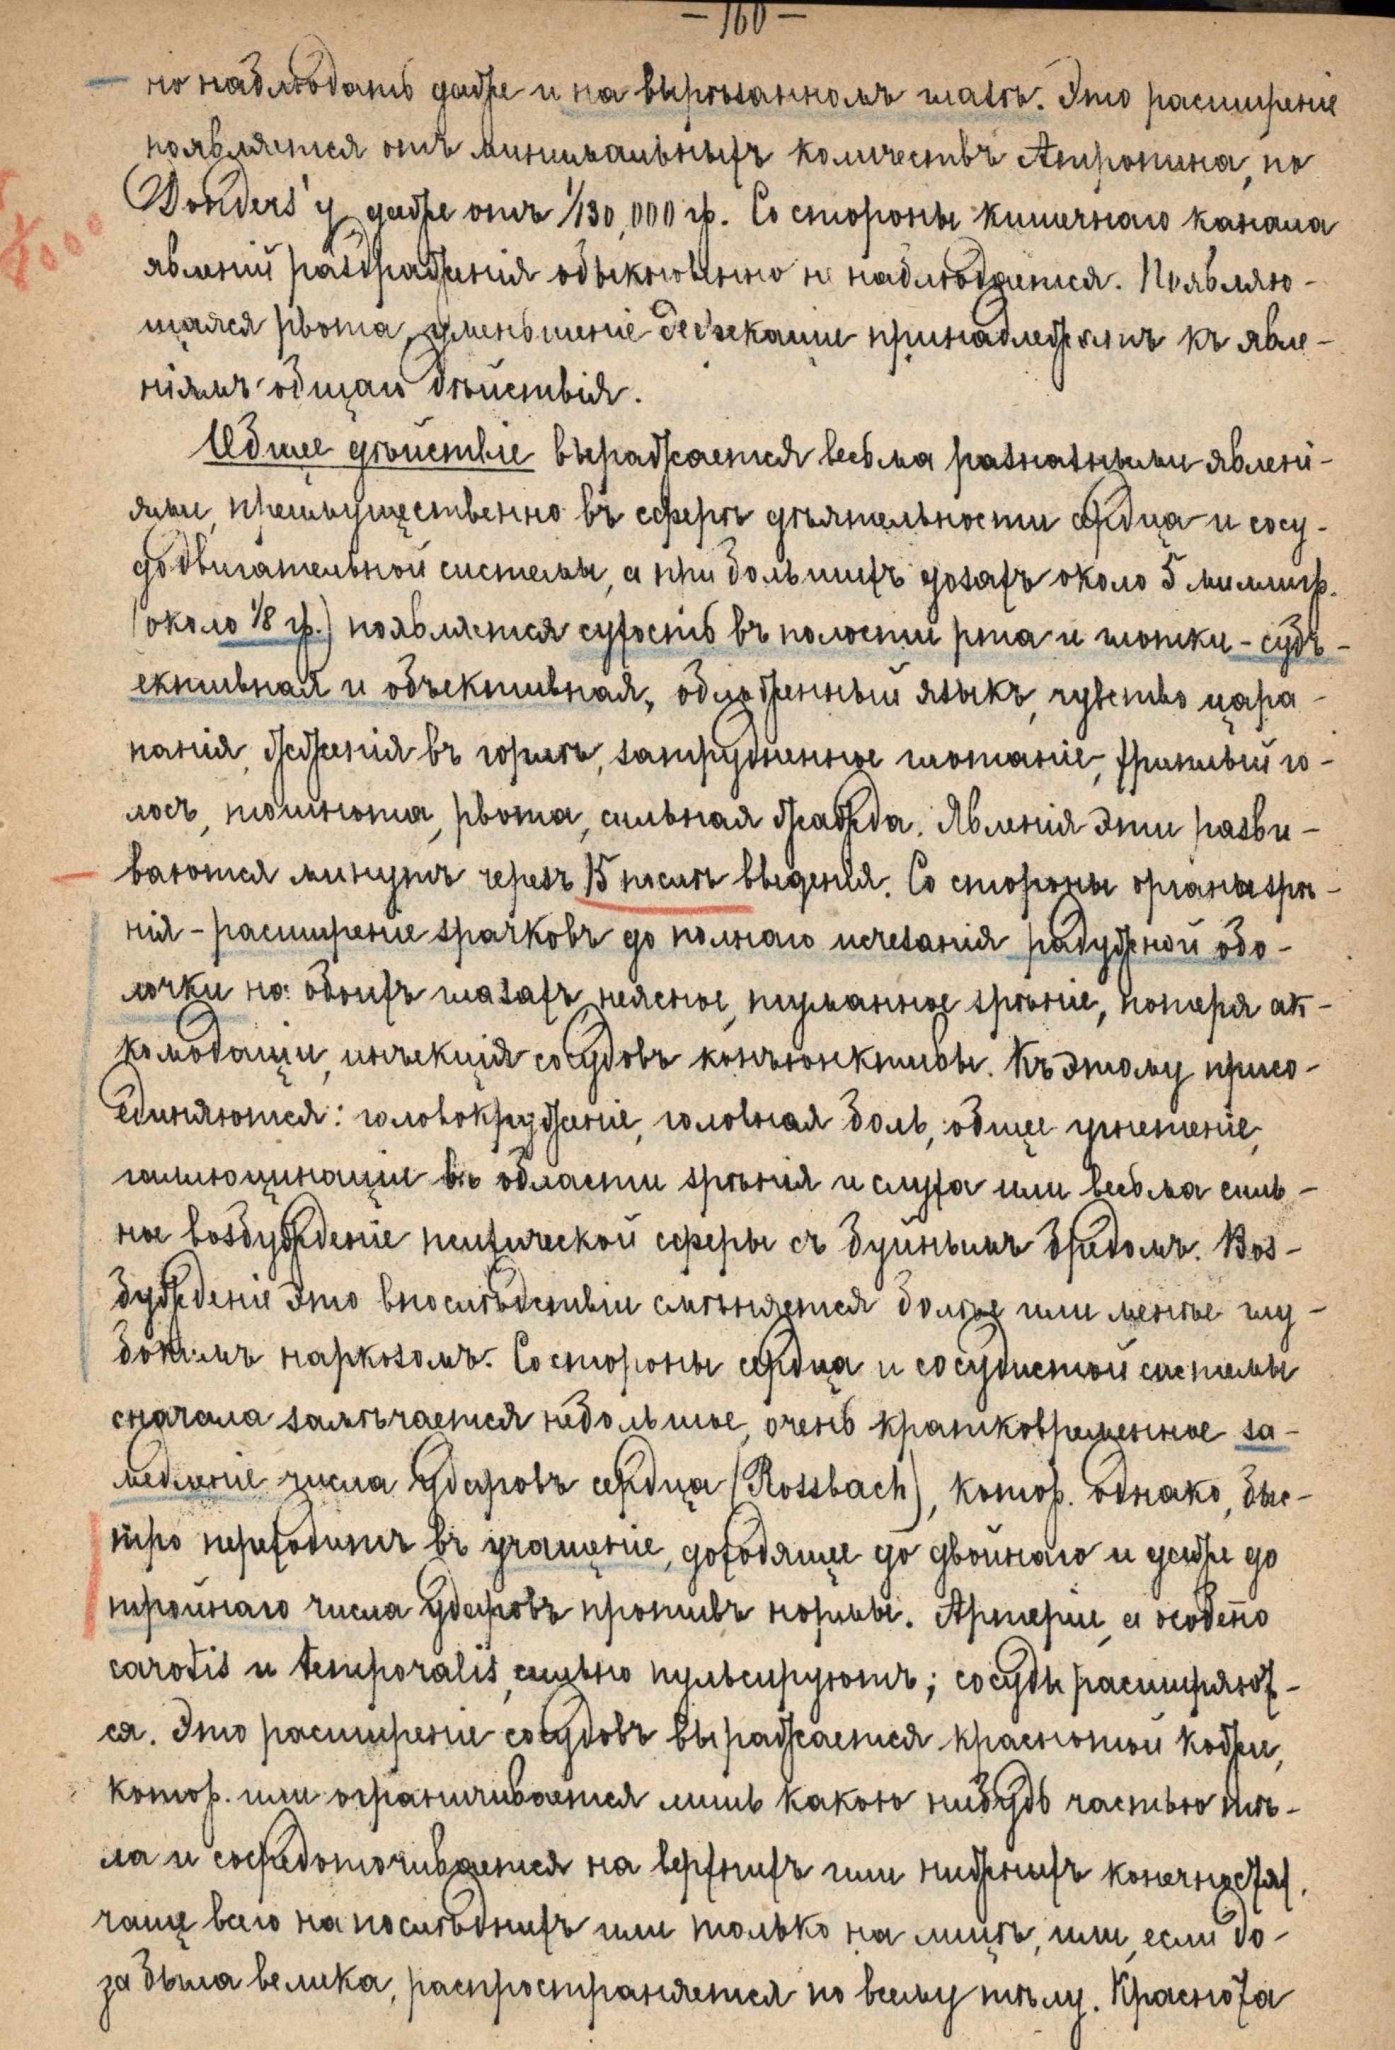 — 160 —
но наблюдать даже и на вырѣзанномъ глазѣ. Это расширеніе
появляется отъ минимальныхъ количествъ Атропина, по
Donders'у даже отъ 1/130,000 гр. Со стороны кишечнаго канала
явленій раздраженія обыкновенно не наблюдается. Появляю-
щаяся рвота, уменьшеніе дефекаціи принадлежатъ къ явле-
ніямъ общаго дѣйствія.
Общее дѣйствіе выражается весьма разнатными явлені-
ями, преимущественно въ сферѣ дѣятельности сердца и сосу-
додвигательной системы, а при большихъ дозахъ около 5 миллигр.
(около 1/8 гр.) появляется сухость въ полости рта и глотки - субъ-
ективная и объективная, обложенный языкъ, чувство цара-
панія, жженія въ горлѣ, затрудненное глотаніе, хриплый го-
лосъ, тошнота, рвота, сильная жажда. Явленія эти разви-
ваются минутъ черезъ 15 послѣ введенія. Со стороны органа зрѣ-
нія - расширеніе зрачковъ до полнаго исчезанія радужной обо-
лочки на обоихъ глазахъ, неясное, туманное зрѣніе, потеря ак-
комодаціи, инъекція сосудовъ конъюнктивы. Къ этому присо-
единяются: головокруженіе, головная боль, общее угнетеніе,
галлюцинаціи въ области зрѣнія и слуха или весьма силь-
ное возбужденіе психической сферы съ буйнымъ бредомъ. Воз-
бужденіе это впослѣдствіи смѣняется болѣе или менѣе глу-
бокимъ наркозомъ. Со стороны сердца и сосудистой системы
сначала замѣчается небольшое, очень кратковременное за-
медленіе числа ударовъ сердца (Rossbach), котор. однако, быс-
тро переходитъ въ учащеніе, доходящее до двойнаго и даже до
тройнаго числа ударовъ противъ нормы. Артеріи, а особенно
carotis и temporalis, сильно пульсируютъ; сосуды расширяют-
ся. Это расширеніе сосудовъ выражается краснотой кожи,
котор. или ограничивается лишь какою нибудь частью тѣ-
ла и сосредоточивается на верхнихъ или нижнихъ конечностях,
чаще всего на послѣднихъ или только на лицѣ, или, если до-
за была велика, распространяется по всему тѣлу. Краснота